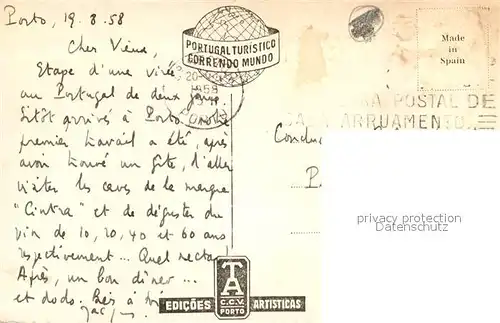 Porto, 19.8.58
Cher Vieux,
Etape d'une virée
au Portugal de deux jours
Sitôt arrivés à Porto
premier travail a été, après
avoir trouvé un gîte, d'aller
visiter les caves de la marque
"Cintra" et de déguster du
vin de 10, 20, 40 et 60 ans
respectivement ... Quel nectar!
Après, un bon dîner ...
et dodo.
PORTUGAL TURÍSTICO
CORRENDO MUNDO
20
1958
Made
in
Spain
POSTAL DE
ARRUAMENTO
privacy protection
watermark
TA
C.C.V.
PORTO
EDIÇÕES ARTISTICAS